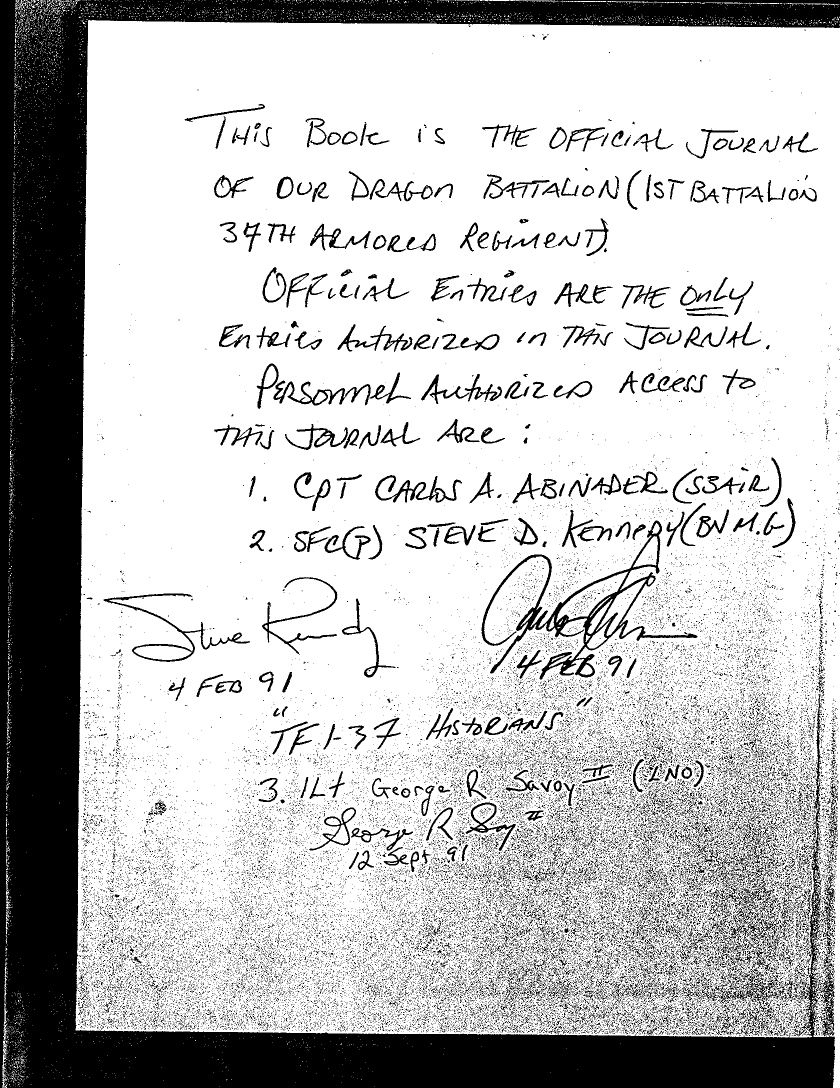 THIS BOOK IS THE OFFICIAL JOURNAL
OF OUR DRAGON BATTALION (1ST BATTALION
37TH ARMORED REGIMENT).
OFFICIAL ENTRIES ARE THE ONLY
ENTRIES AUTHORIZED IN THIS JOURNAL.
PERSONNEL AUTHORIZED ACCESS TO
THIS JOURNAL ARE:
1. CPT CARLOS A. ABINADER (S3AIR)
2. SFC(P) STEVE D. KENNEDY (BN M.G)
Steve Kennedy
4 FEB 91 4 FEB 91
"TF 1-37 HISTORIANS"
3. 1Lt George R Savoy II (LNO)
George R Savoy II
12 Sept 91